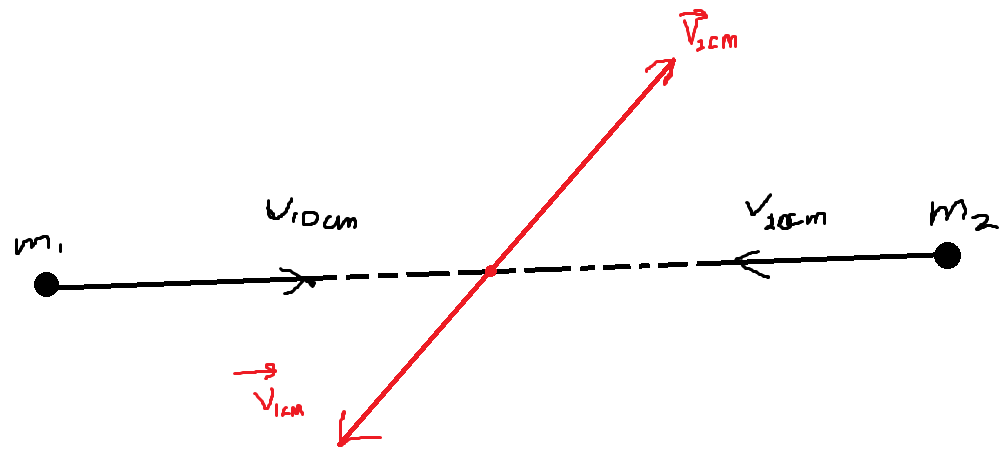 V⃗₂cm
V₁₀cm
V₂₀cm
m₂
m₁
V⃗₁cm